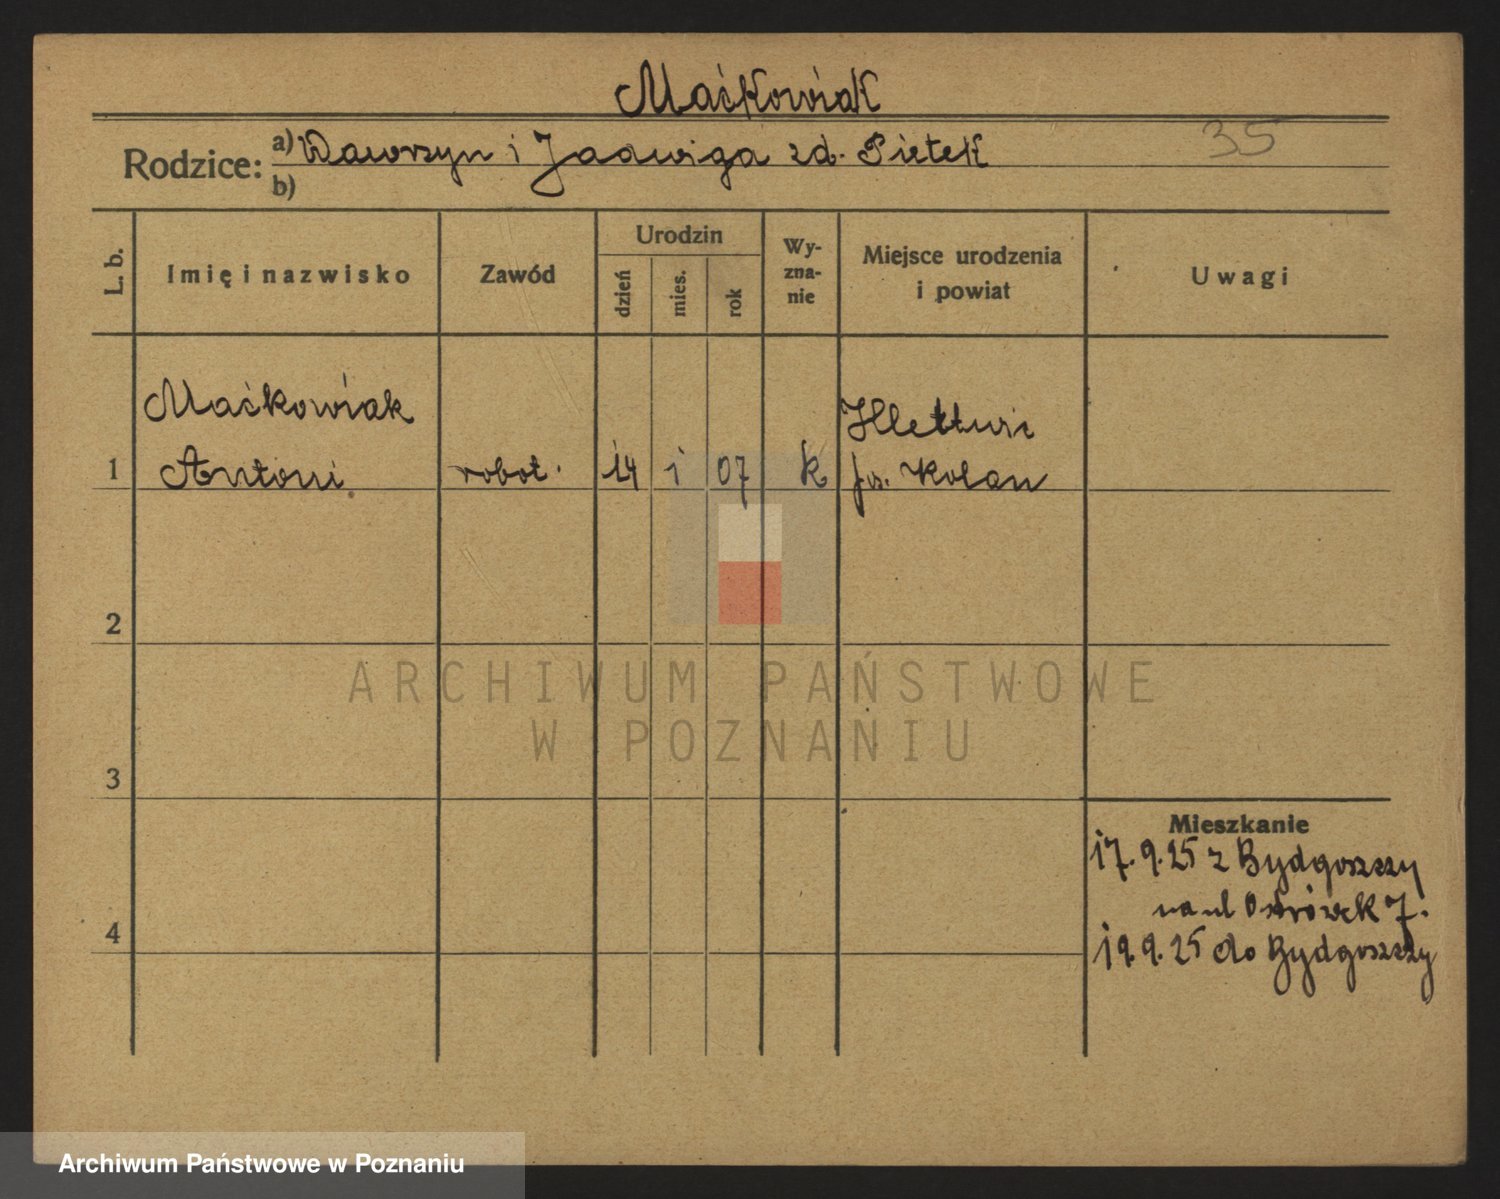 Maćkowiak
Rodzice: a) Wawrzyn i Jadwiga zd. Pietek
35
b)
L. b.
Imię i nazwisko
Zawód
Urodzin
dzień
mies.
rok
Wy-
zna-
nie
Miejsce urodzenia
i powiat
Uwagi
Maćkowiak
1 Antoni robot. 14 i 07 k
2
3
4
Mieszkanie
17.9.25 z Bydgoszczy
na ul Ostrówek 7.
19.9.25 do Bydgoszczy
ARCHIWUM PAŃSTWOWE
W POZNANIU
Archiwum Państwowe w Poznaniu